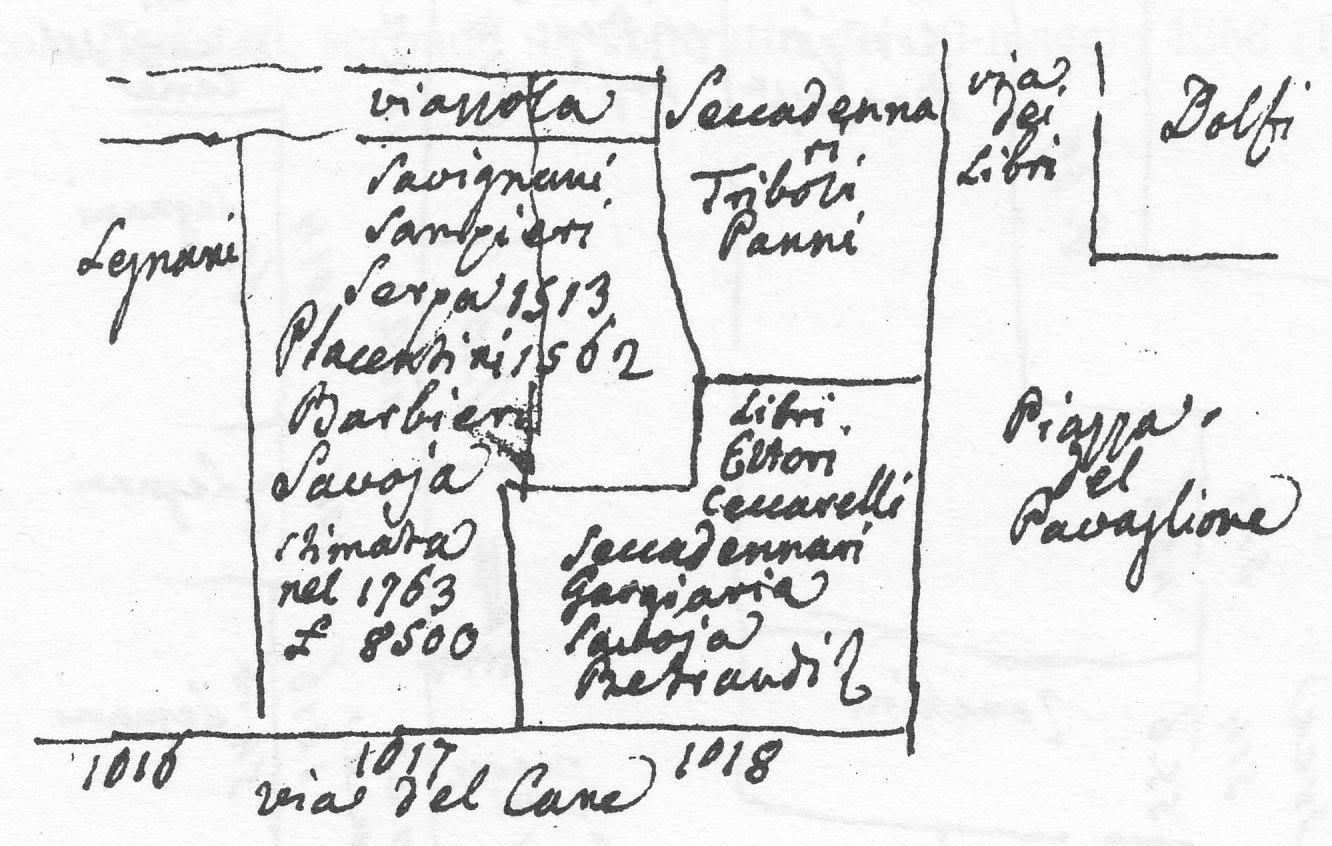 viazzola
Legnani
Savignani
Sampieri
Serpa 1513
Placentini 1562
Barbieri
Savoja
stimata
nel 1763
£ 8500
Seccadenna
ri
Triboli
Panni
Libri
Ettori
Ceccarelli
Seccadennari
Gargiaria
Savoja
Betrandi
via
dei
Libri
Dolfi
Piazza
del
Pavaglione
1016
1017
1018
via del Cane